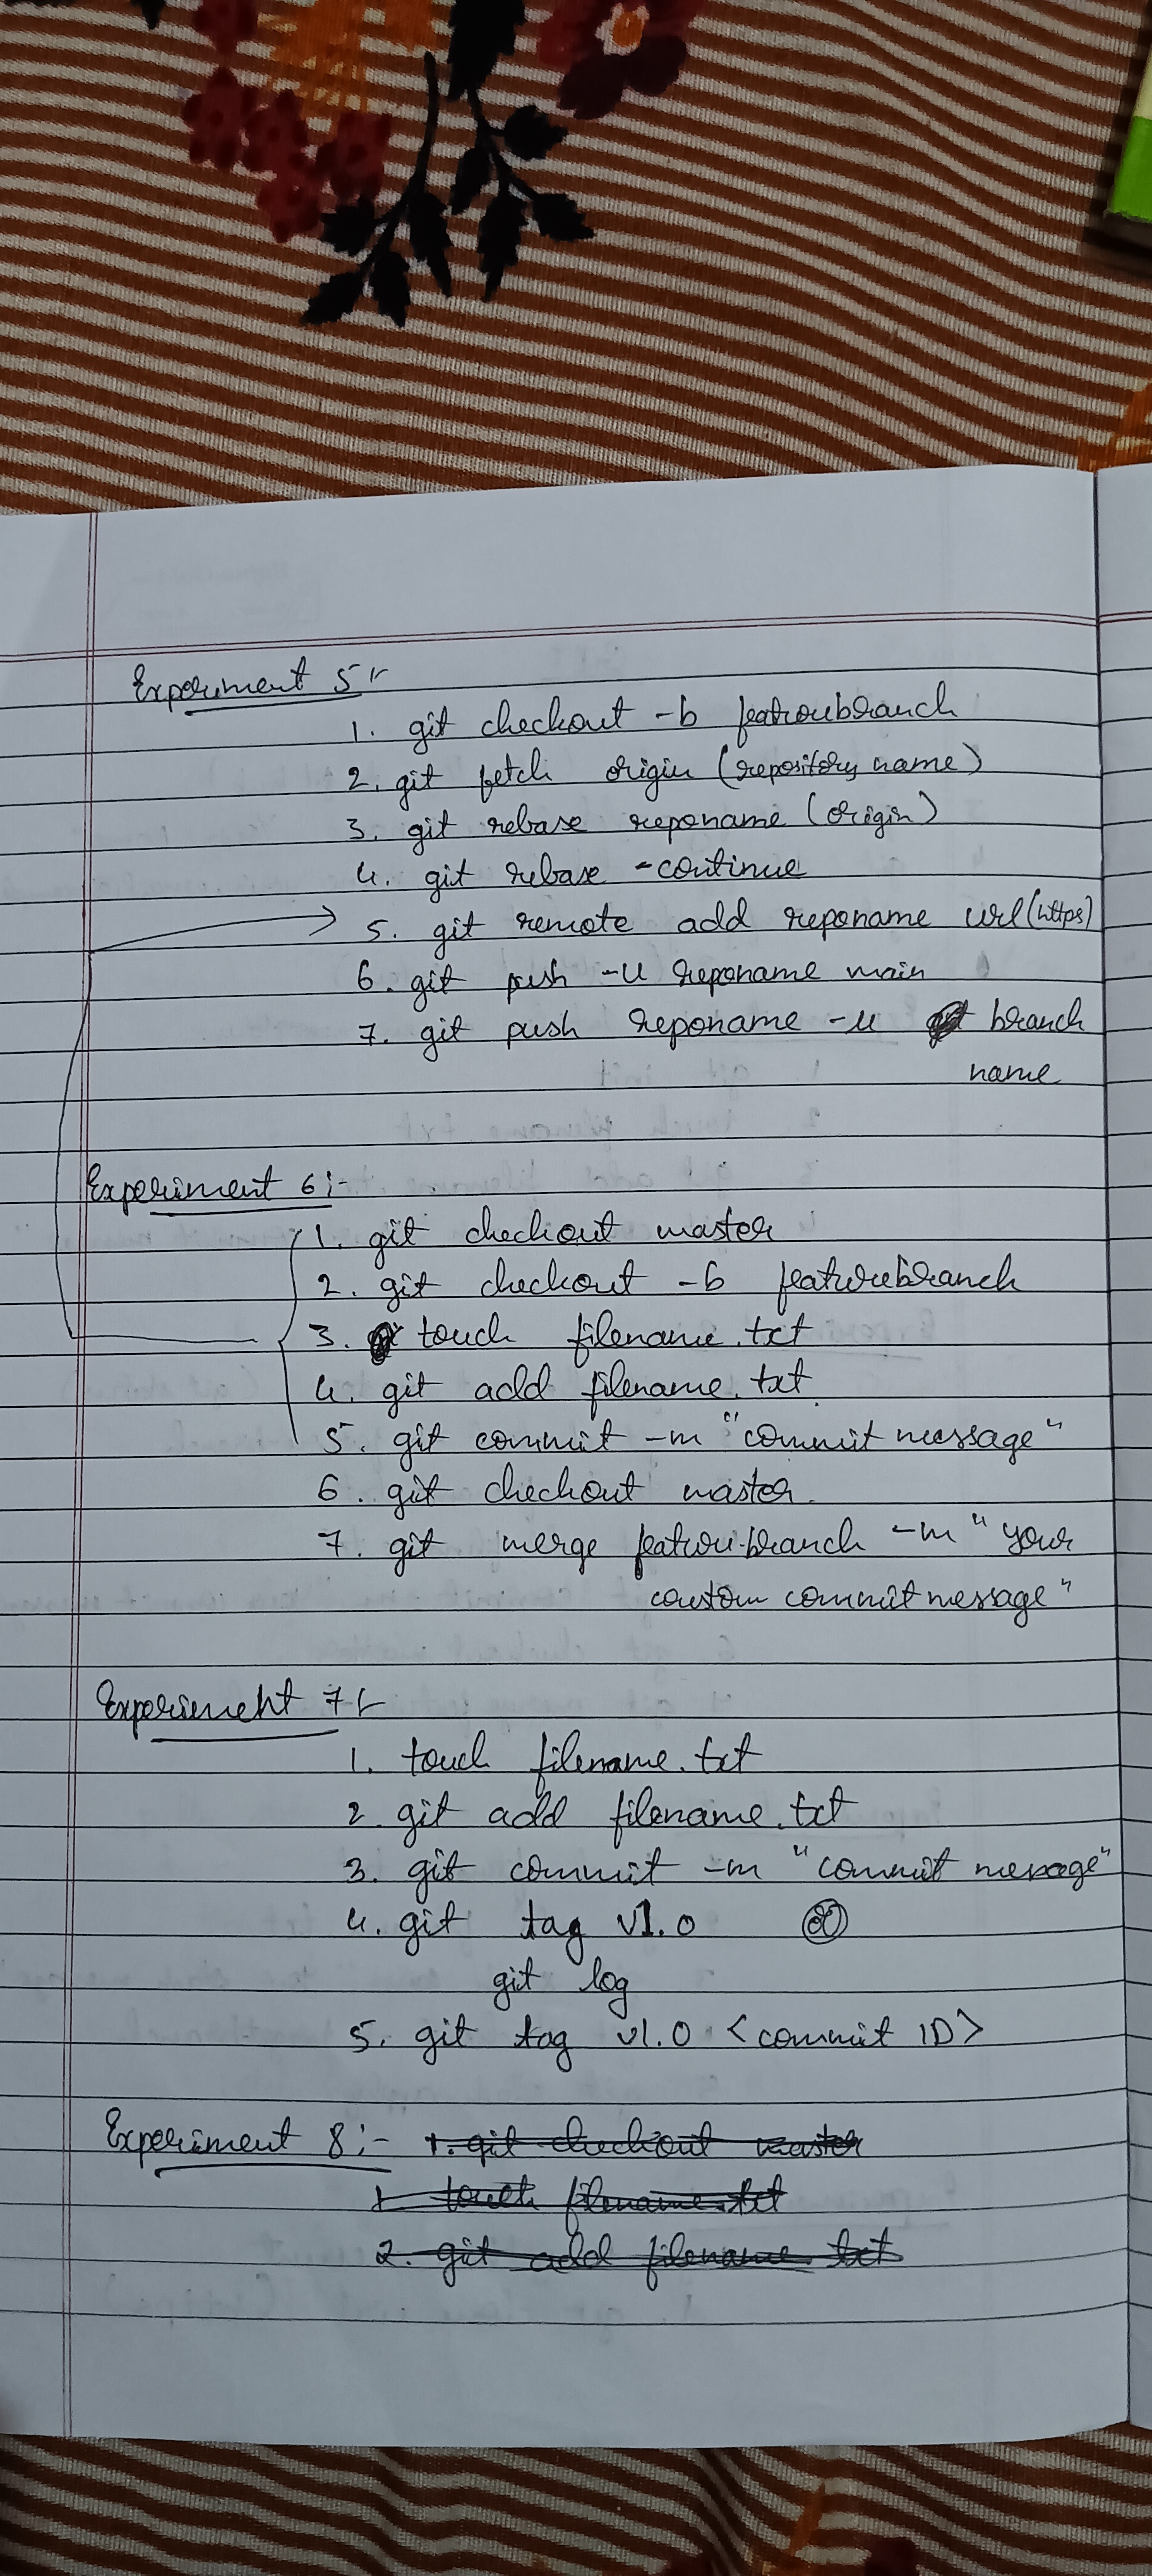 Experiment 5:-
1. git checkout -b featurebranch
2. git fetch origin (repository name)
3. git rebase reponame (origin)
4. git rebase -continue
5. git remote add reponame url (https)
6. git push -u reponame main
7. git push reponame -u branch
name
Experiment 6:-
1. git checkout master
2. git checkout -b featurebranch
3. touch filename.txt
4. git add filename.txt
5. git commit -m "commit message"
6. git checkout master
7. git merge feature-branch -m "your
custom commit message"
Experiment 7:-
1. touch filename.txt
2. git add filename.txt
3. git commit -m "commit message"
4. git tag v1.0
git log
5. git tag v1.0 <commit ID>
Experiment 8:- 1. git checkout master
1 touch filename.txt
2. git add filename txt